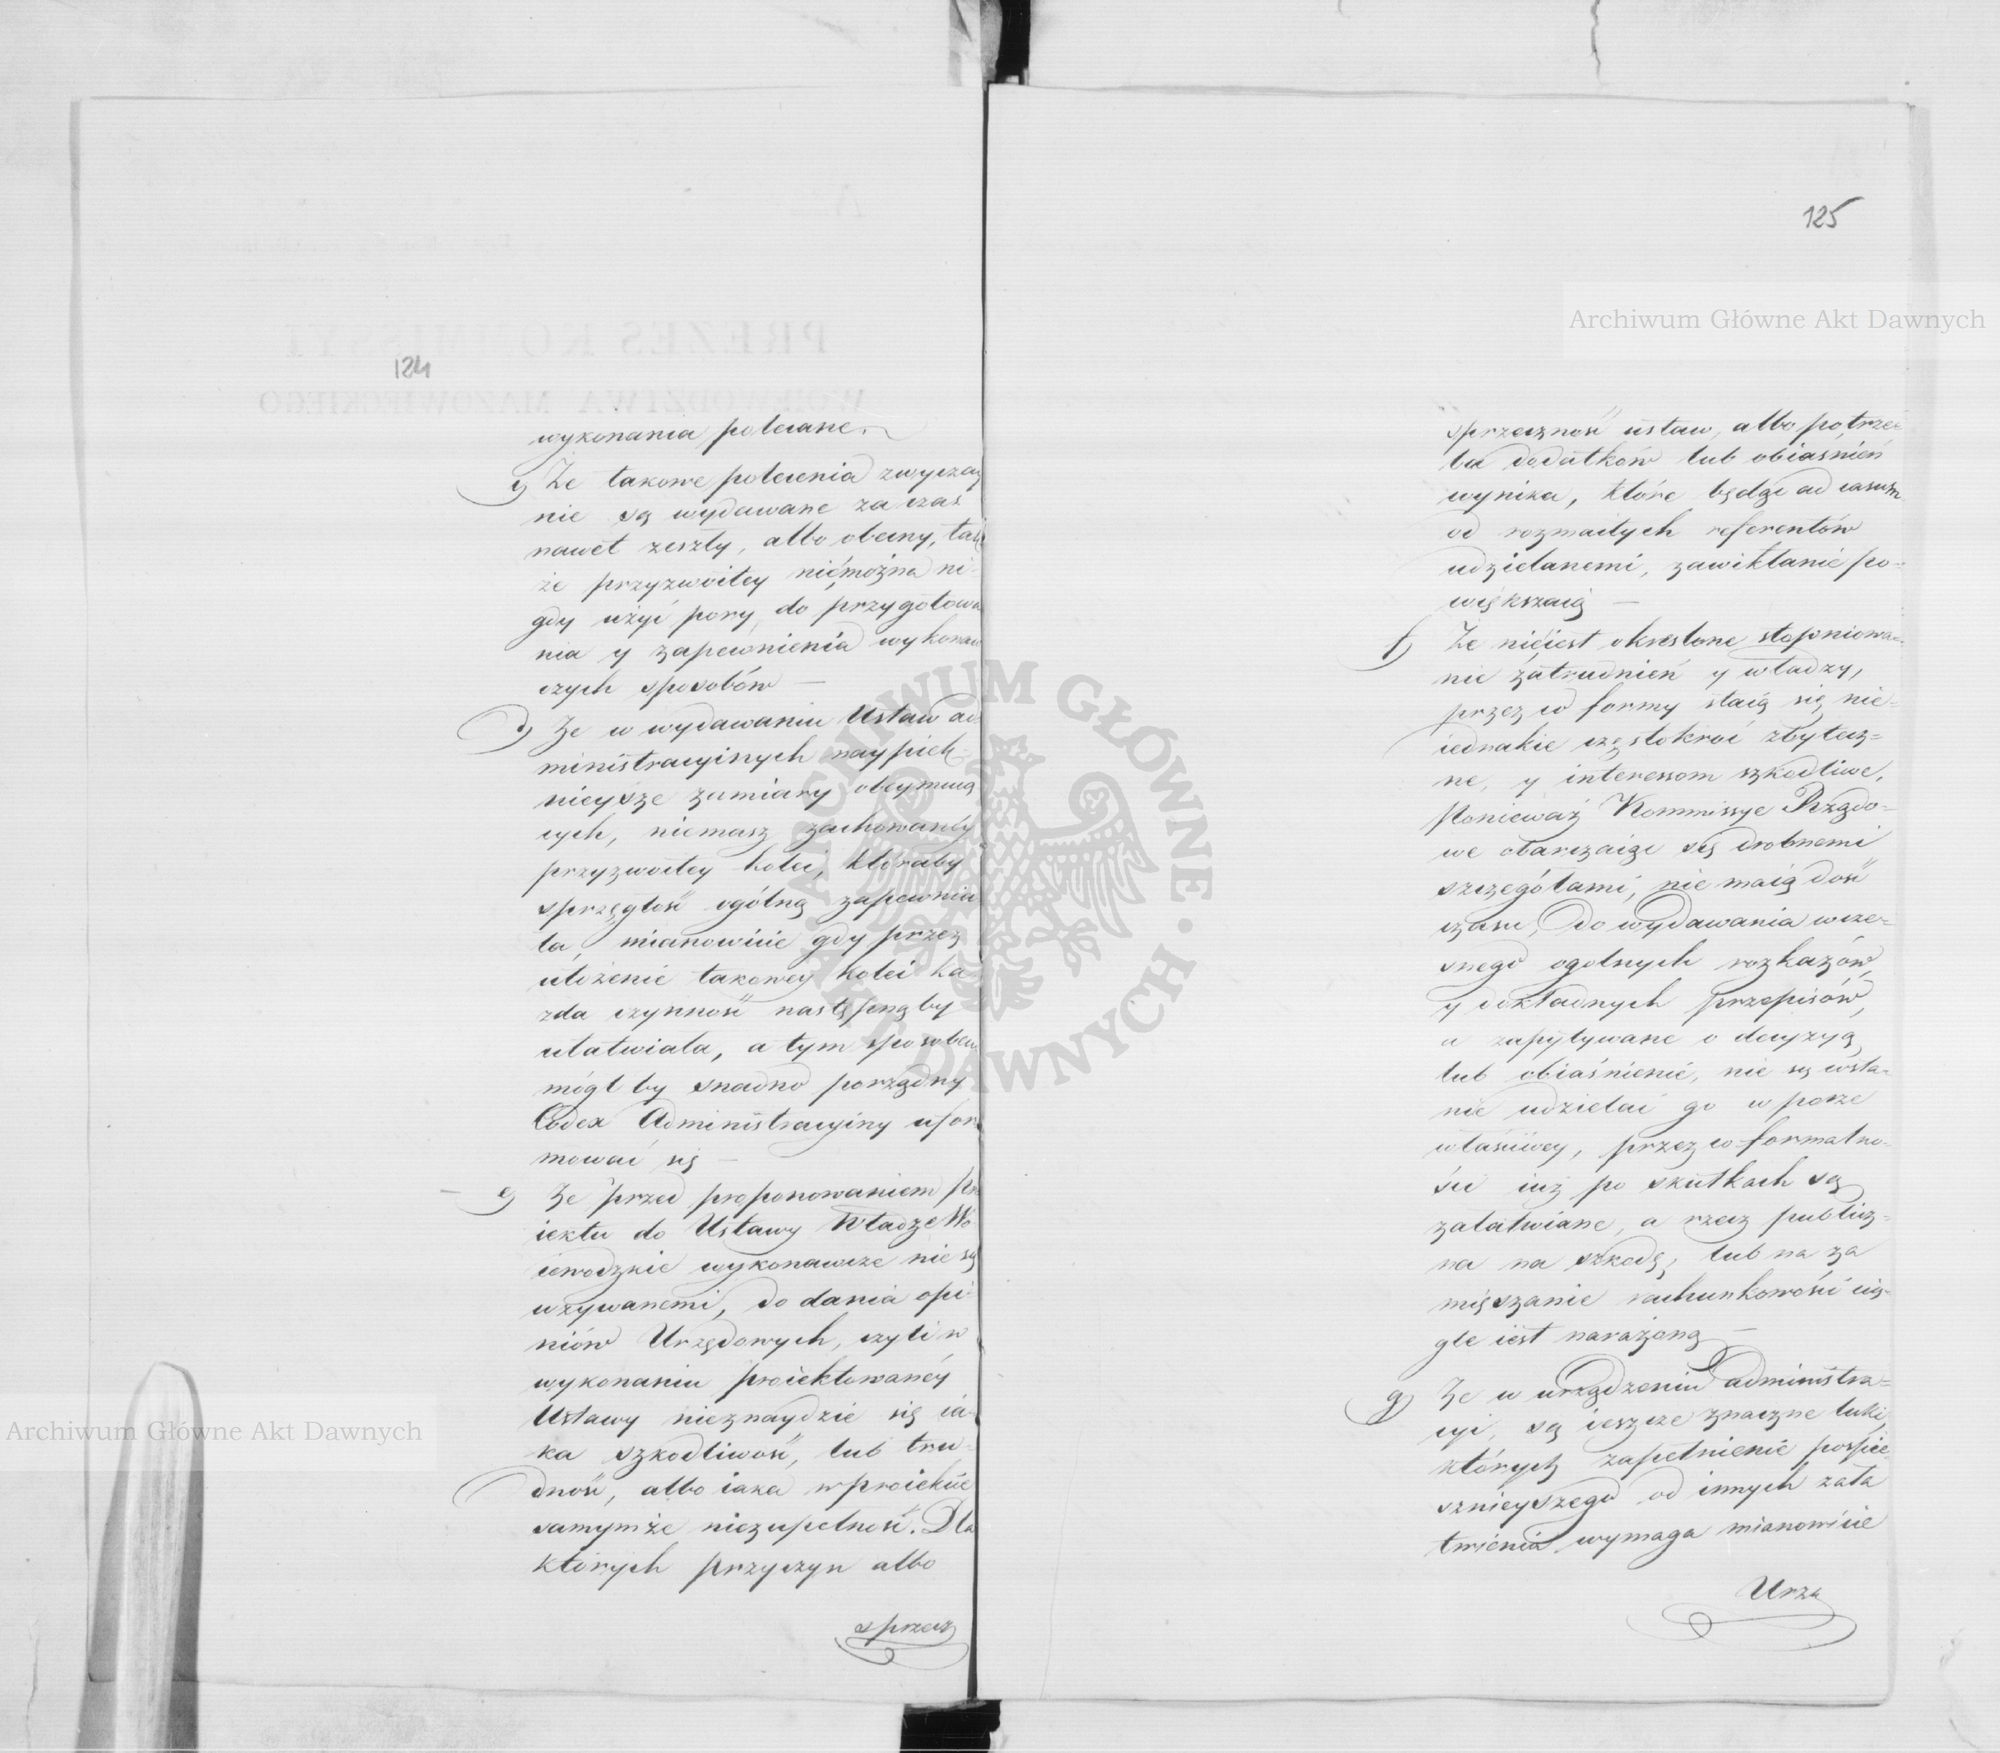 124
wykonania polecane.
c) Ze takowe polecenia zwyczay
nie są wydawane za czas
nawet zeszły, albo obecny, tak
że przyzwoitey niemożna ni-
gdy użyć pory, do przygotowa
nia y zapewnienia wykonaw
czych sposobów —
d) Ze w wydawaniu Ustaw ad
ministracyinych naypięk-
nieysze zamiary obeymuią
cych, niemasz zachowaney
przyzwoitey kolei, któraby
sprzęgłość ogólną zapewnia
ła, mianowicie gdy przez
ułożenie takowey kolei ka
żda czynność następną by
ułatwiała, a tym sposobem
mógł by snadno porządny
Codex Administracyiny ufor
mować się —
— e) Ze przed proponowaniem pro
iektu do Ustawy Władze Wo
iewodzkie wykonawcze nie są
używanemi, do dania opi-
niów Urzędowych, czyli w
wykonaniu proiektowaney
Ustawy nieznaydzie się ia-
ka szkodliwość, lub tru-
dność, albo iaka w proiekcie
samymże niezupełność. Dla
których przyczyn albo
sprzecz
125
sprzeczność ustaw, albo potrze-
ba dodatków lub obiaśnień
wynika, które będąc ad casum
od rozmaitych referentów
udzielanemi, zawikłanie po-
większaią —
f) Ze nieiest okreslone stopniowa-
nie zatrudnień y władzy,
przez co formy staią się nie-
iednakie częstokroć zbytecz=
ne, y interessom szkodliwe,
Ponieważ Kommissye Rządo-
we obarczaiąc się drobnemi
szczegółami, nie maią dość
czasu, do wydawania wcze-
snego ogolnych rozkazów,
y dokładnych przepisów,
a zapytywane o decyzyą
lub obiaśnienie, nie są w sta-
nie udzielać go w porze
właściwey, przez co formalno-
ści iuż po skutkach są
załatwiane, a rzecz publicz=
na na szkodę, lub na za
mięszanie rachunkowości cią-
gle iest narażoną —
g) Ze w urządzeniu administra=
cyi, są ieszcze znaczne luki,
których zapełnienie pospie
sznieyszego od innych zała
twienia wymaga mianowicie
Urzą
Archiwum Główne Akt Dawnych
Archiwum Główne Akt Dawnych
ARCHIWUM GŁÓWNE · AKT DAWNYCH ·
PREZES KOMMISSYI
WOJEWÓDZTWA MAZOWIECKIEGO